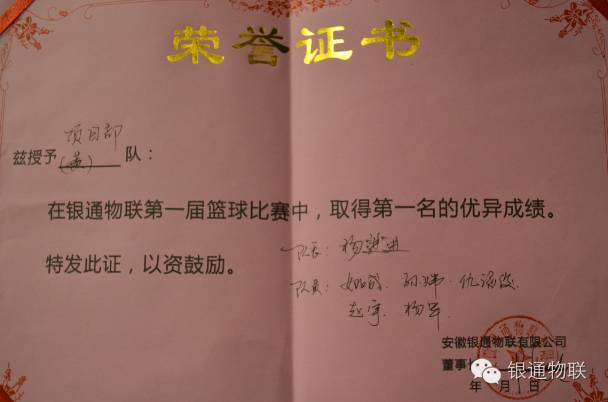 荣誉证书
项目部
兹授予(黄)队：
在银通物联第一届篮球比赛中，取得第一名的优异成绩。
特发此证，以资鼓励。
队长：杨
队员：孙
赵宇、杨军
安徽银通物联有限公司
董事
年 月 日
银通物联